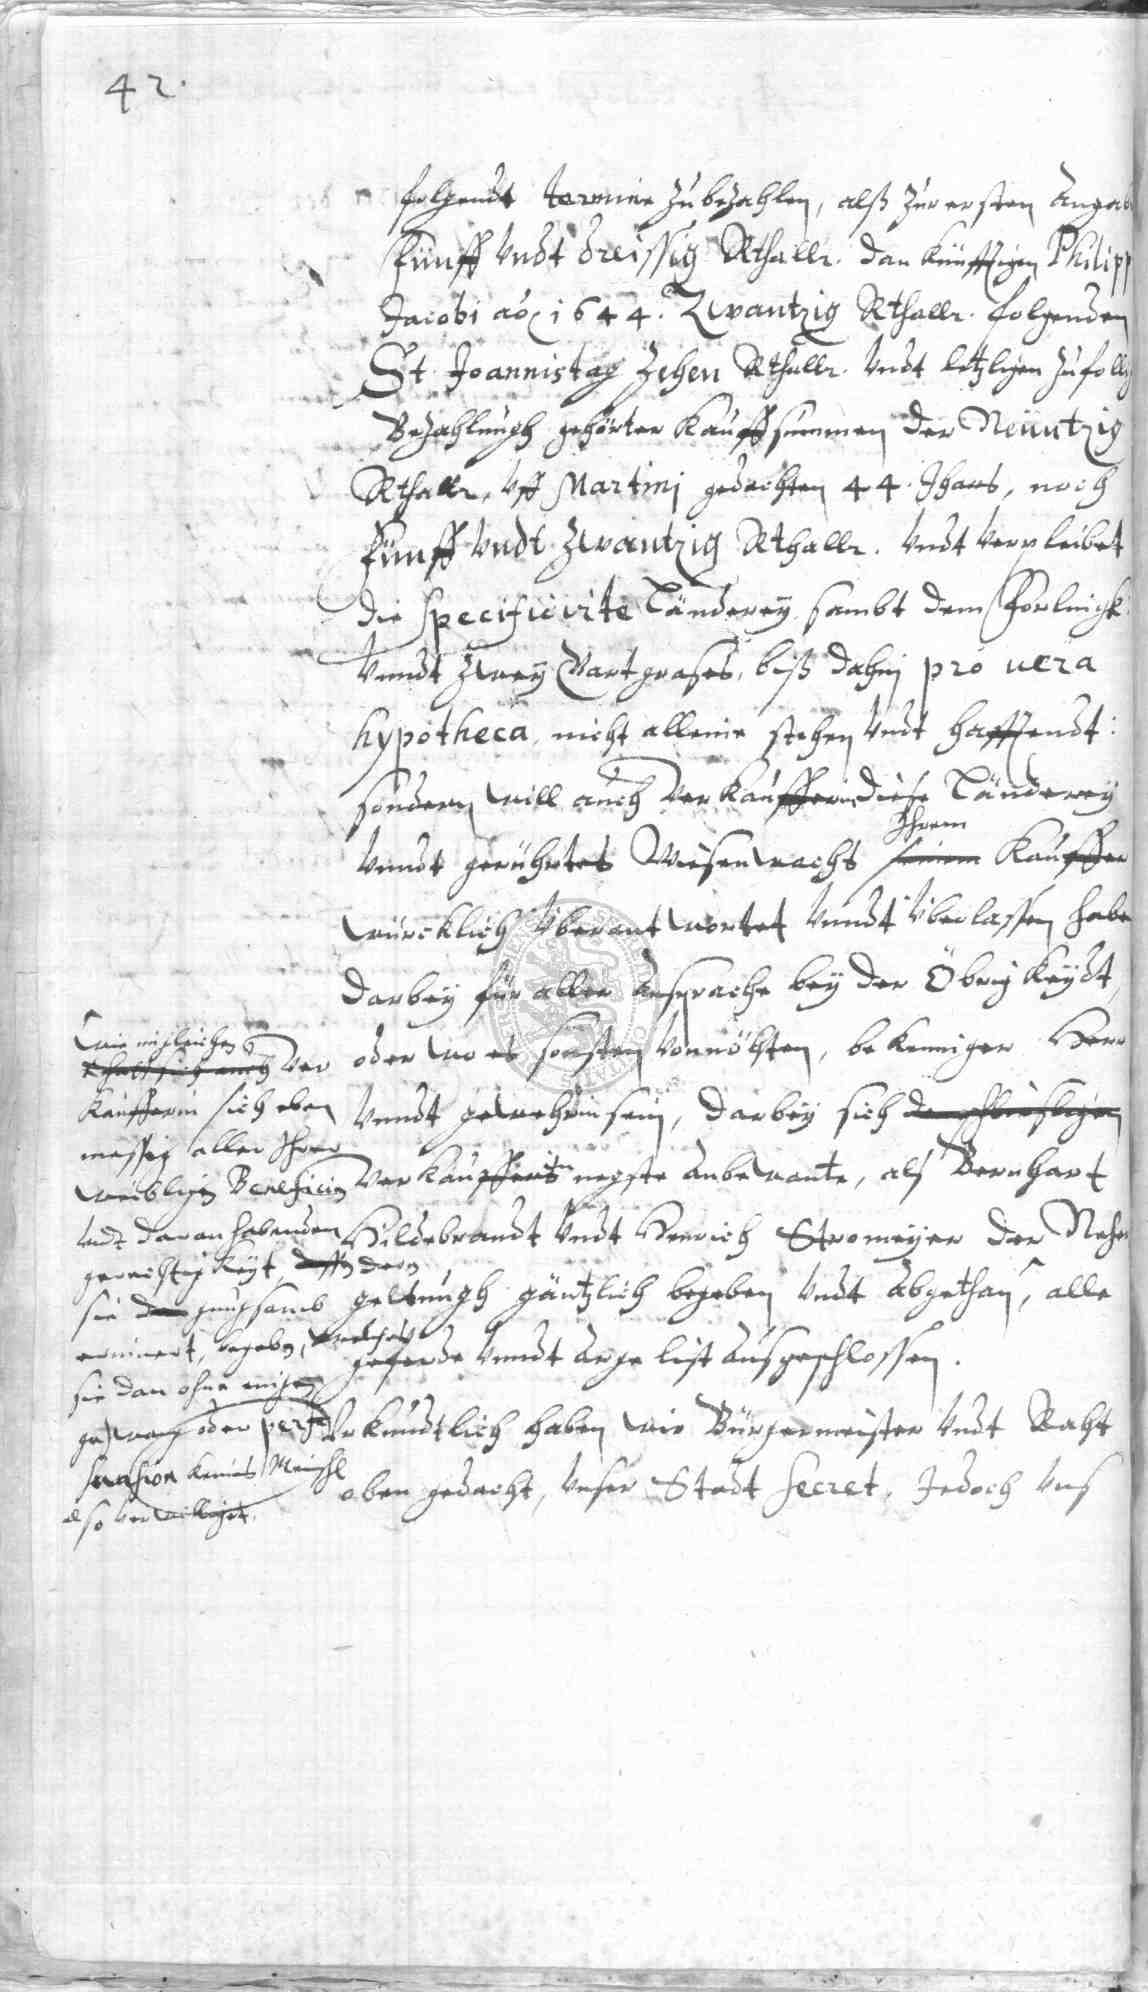 42.
folgendt termine zu bezahlen, alß zur ersten Angab
fünff undt dreissig Rthallr. dan künfftigen Philipp
Jacobi aõ 1644. Zwantzig Rthallr. folgenden
St. Joannistag Zehen Rthallr. undt letzligen zu folliger
Bezahlungh gehörter Kauffsummen der Neüntzig
Rthallr, uff Martinj gedachten 44. Jhars, noch
fünff undt Zwantzig Rthallr. undt verpleibet
die specificirte Länderey sambt dem
unndt Zwey Vart grases, biß dahin pro uera
hypotheca nicht alleine stehen undt hafftendt:
sondern will auch Verkaufferin diese Länderey
Ihrem
unndt gerührtes Wiesenwachs seinem Kauffer
würcklich überantwortet unndt überlassen habe
darbey für aller Ansprache bey der Obrigkeydt,
oder wo es sonsten vonnöhten, bekenniger Herr
unndt gewehrin sein, darbey sich
Verkauffers negste anbewante, alß Bernhart
Hildebrandt undt Henrich Stromeyer der Neher
geltungh gäntzlich begeben undt abgethan, alle
geferde unndt argelist außgeschlossen.
Urkundtlich haben wir Bürgermeister undt Raht
oben gedacht, unser Stadt secret, Jedoch uns
wie ingleichen
Ver
Kaufferin sich eben
messig aller Ihrer
weibligen Beneficien
undt daran habenden
gerechtigkeyt, dern
sie gnugsamb
erinnert, begeben, welches
sie dan ohne einigen
zwang oder per
suasion keines Menschen
also verwilliget.